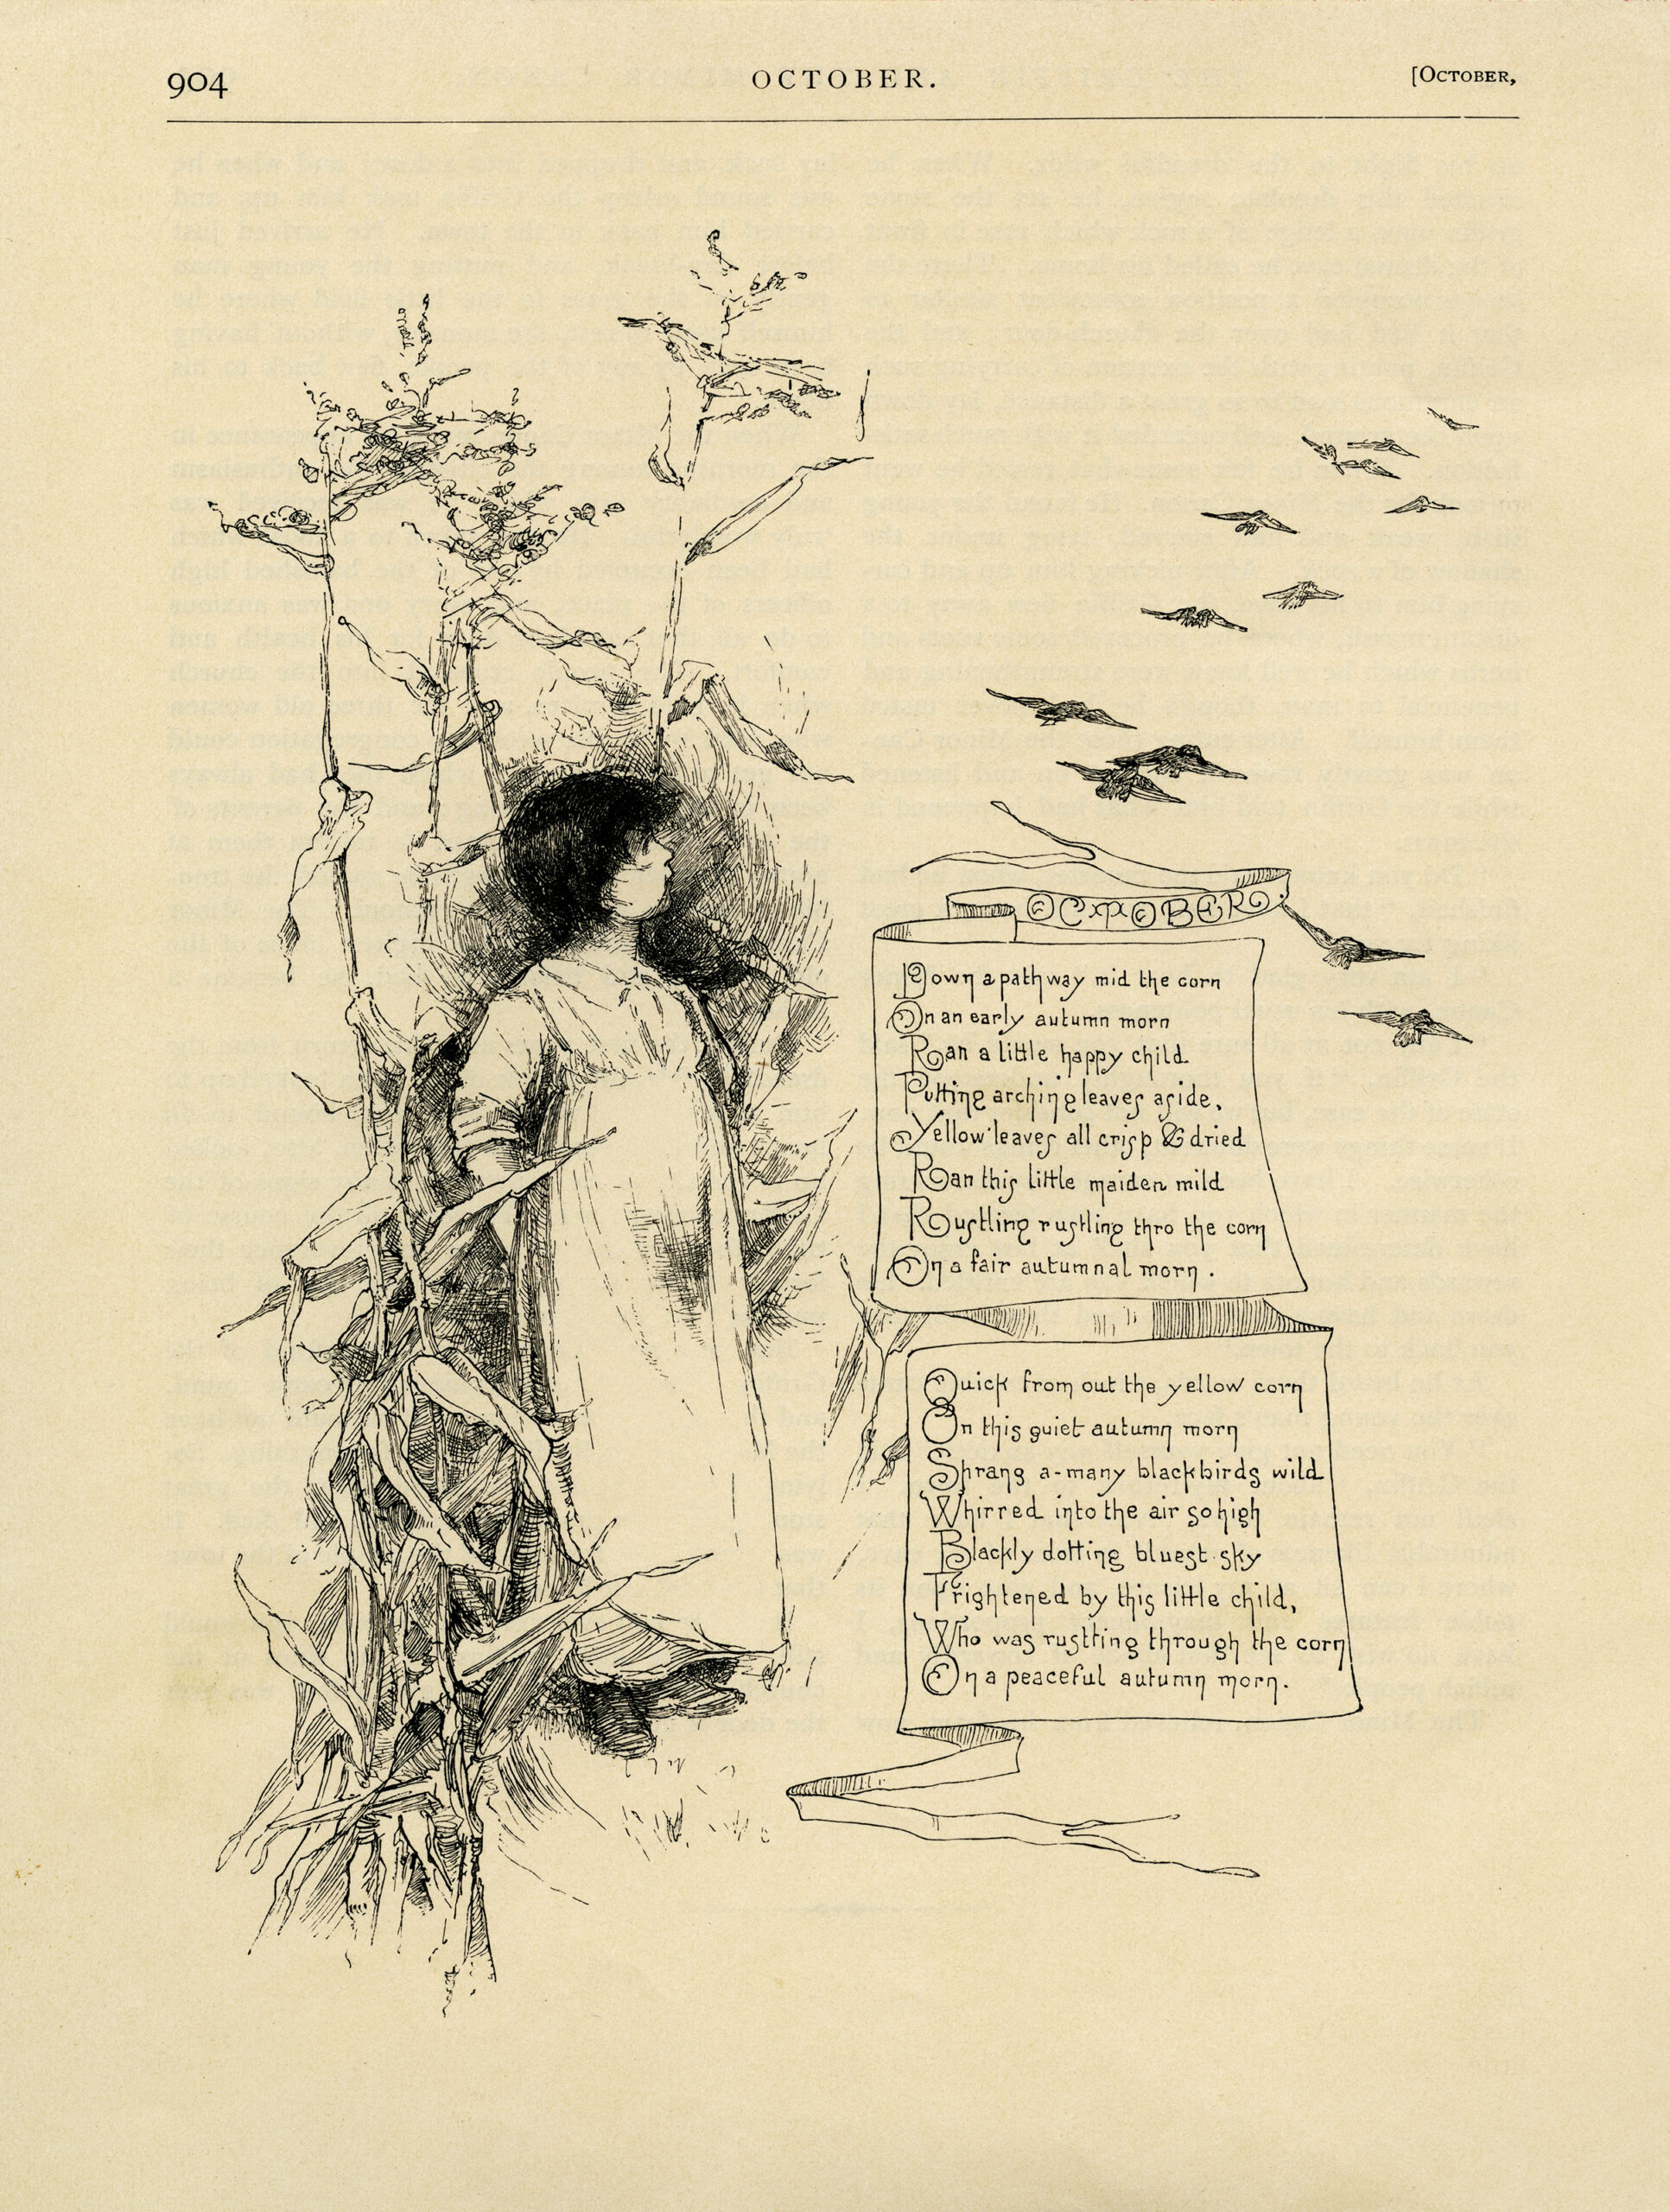 904
OCTOBER.
[OCTOBER,
OCTOBER
Down a pathway mid the corn
On an early autumn morn
Ran a little happy child.
Putting arching leaves aside,
Yellow leaves all crisp & dried
Ran this little maiden mild
Rustling rustling thro the corn
On a fair autumnal morn.
Quick from out the yellow corn
On this quiet autumn morn
Sprang a-many blackbirds wild
Whirred into the air so high
Blackly dotting bluest sky
Frightened by this little child,
Who was rustling through the corn
On a peaceful autumn morn.